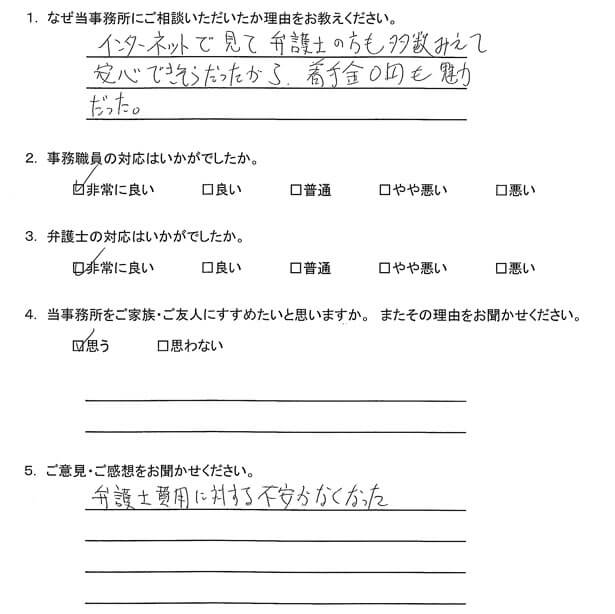 1. なぜ当事務所にご相談いただいたか理由をお教えください。
インターネットで見て弁護士の方も多数みえて
安心できそうだったから、着手金0円も魅力
だった。
2. 事務職員の対応はいかがでしたか。
☑非常に良い □良い □普通 □やや悪い □悪い
3. 弁護士の対応はいかがでしたか。
☑非常に良い □良い □普通 □やや悪い □悪い
4. 当事務所をご家族・ご友人にすすめたいと思いますか。 またその理由をお聞かせください。
☑思う □思わない
5. ご意見・ご感想をお聞かせください。
弁護士費用に対する不安がなくなった